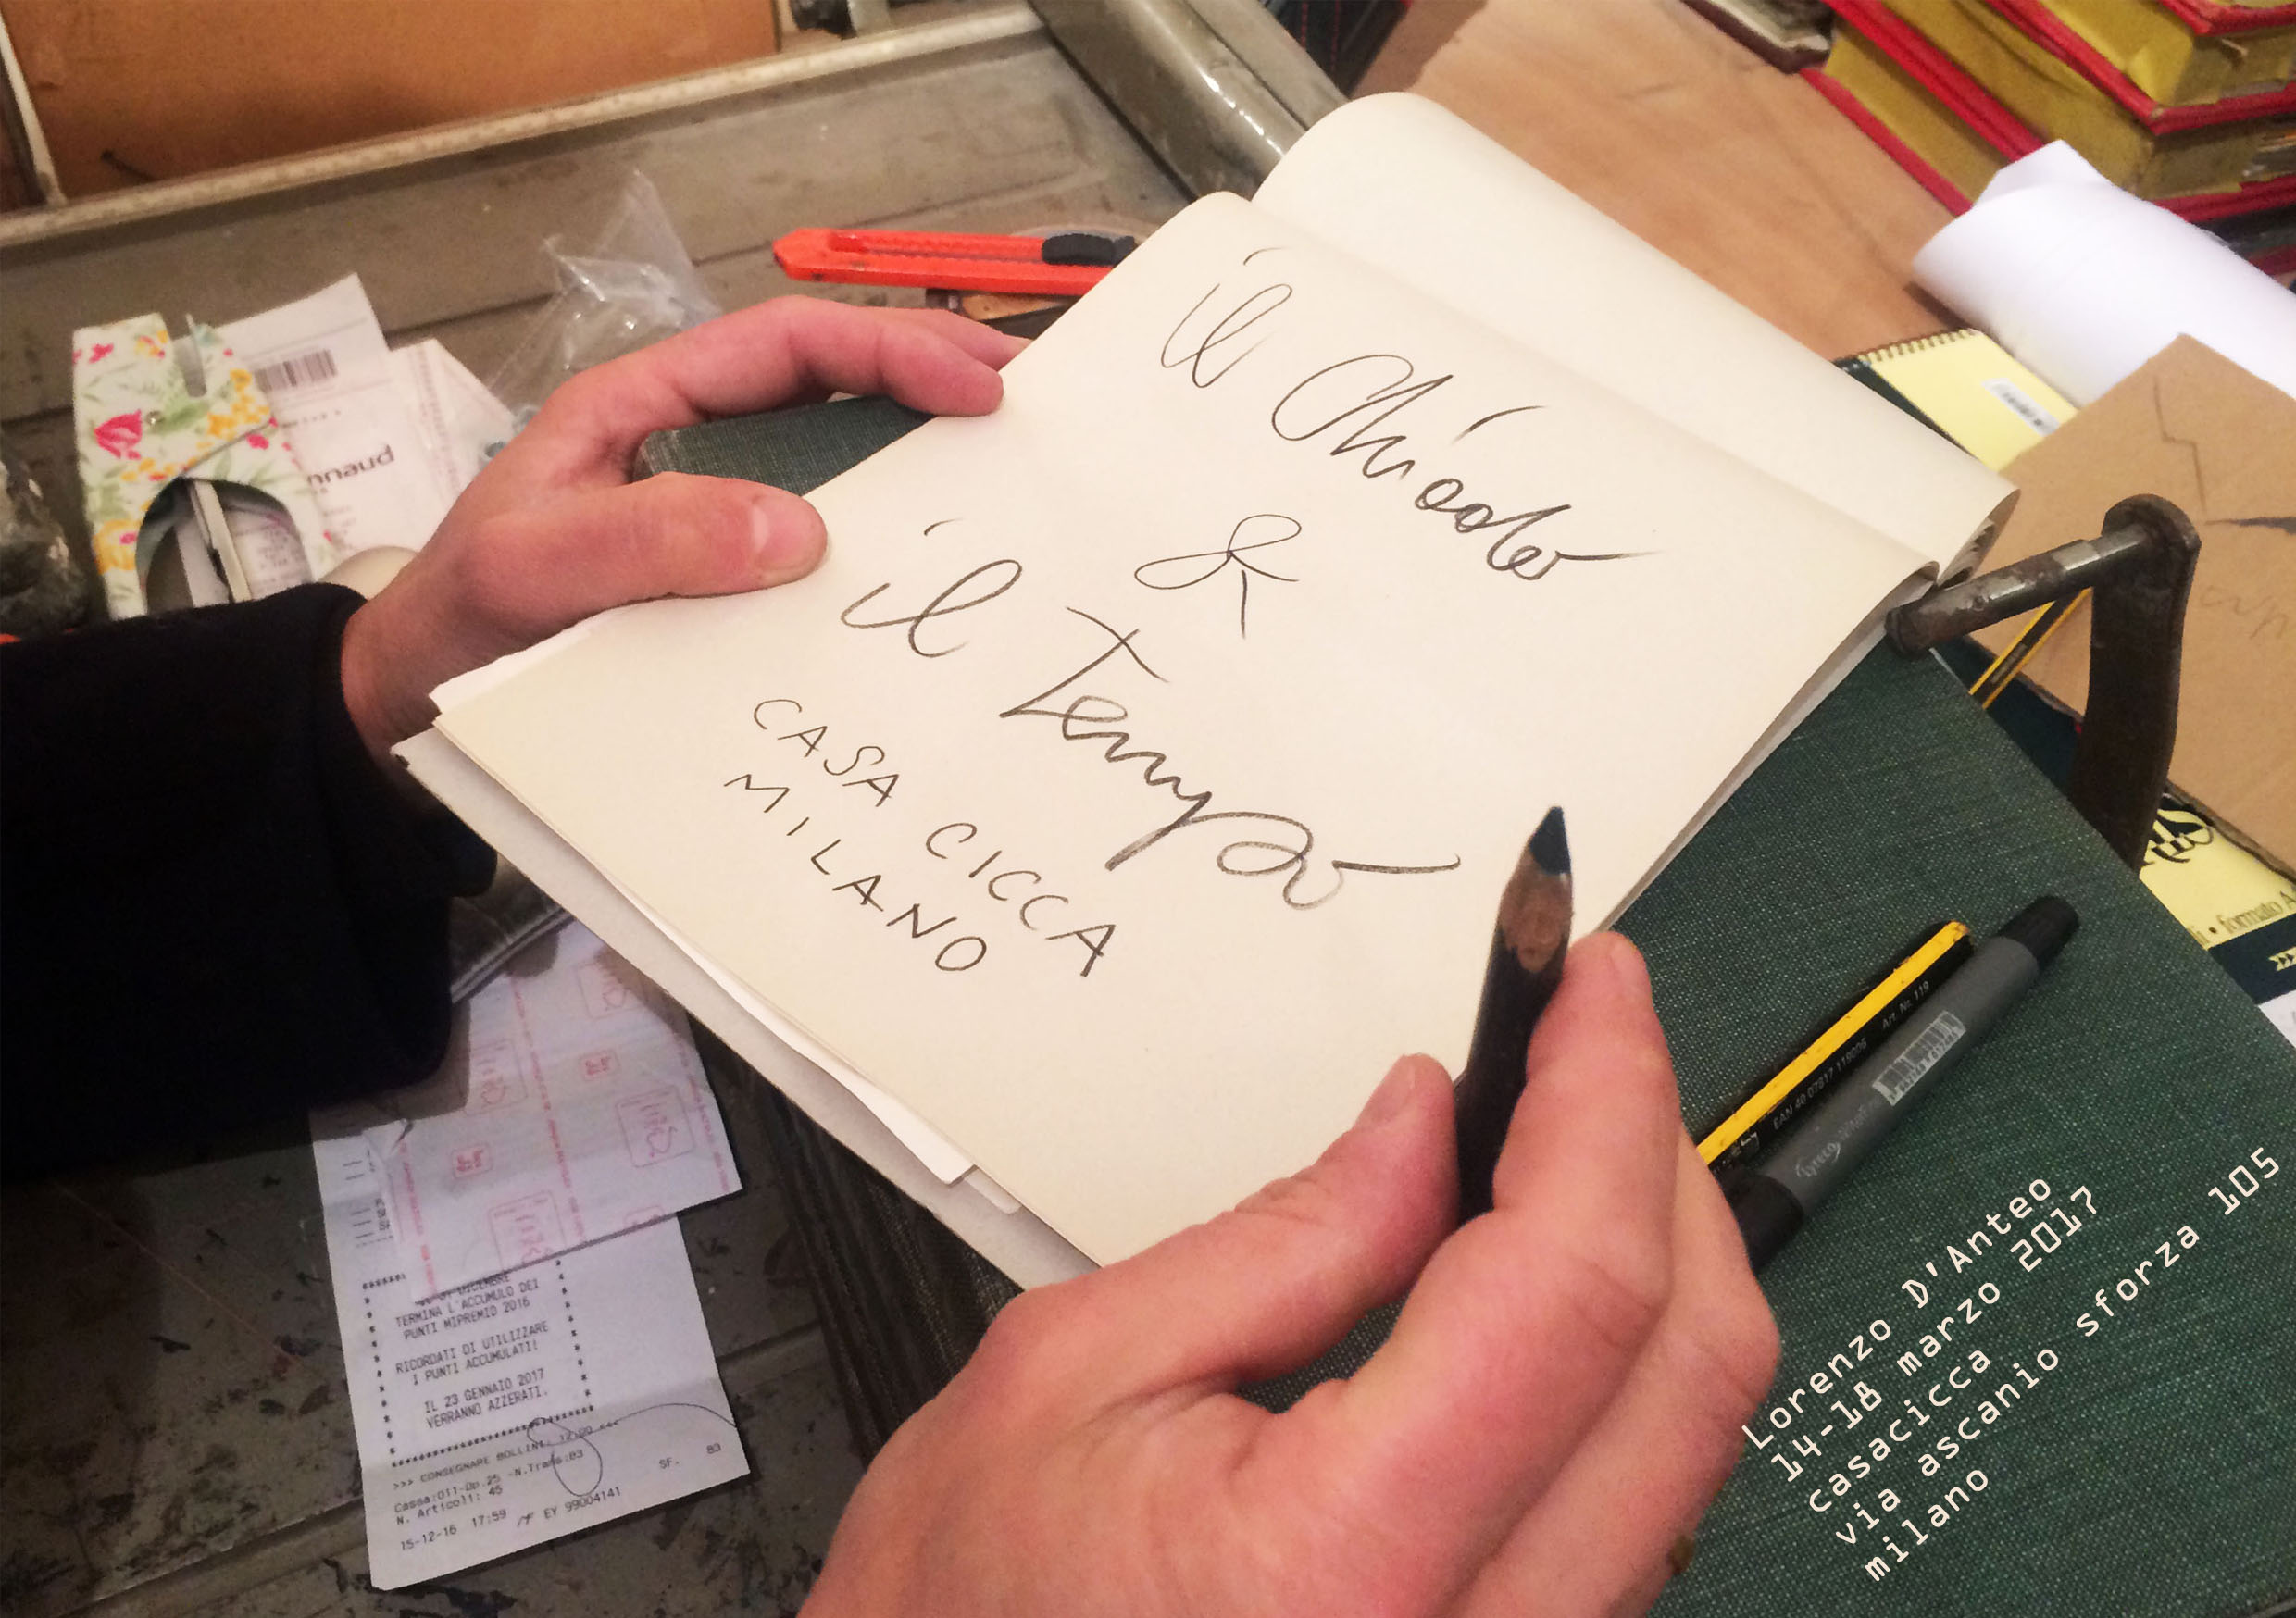 il Chiodo
&
il Tempo
CASA CICCA
MILANO
Lorenzo D'Anteo
14-18 marzo 2017
casacicca
via ascanio sforza 105
milano
TERMINA L'ACCUMULO DEI
PUNTI MIPREMIO 2016
RICORDATI DI UTILIZZARE
I PUNTI ACCUMULATI!
IL 23 GENNAIO 2017
VERRANNO AZZERATI.
>>> CONSEGNARE BOLLINI: 12.00 <<<
Cassa:011-Op.25 -N.Trans:83
N. Articoli: 45
SF. 83
15-12-16 17:59 MF EY 99004141
nnaud
Art. Nr. 119
EAN 40 07817 119006
formato